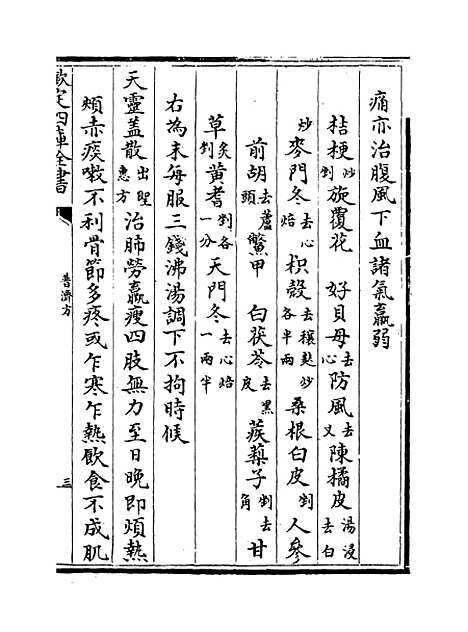 痛亦治腹風下血諸氣羸弱
桔梗炒剉旋覆花 好貝母去心防風去叉陳橘皮湯浸去白
炒麥門冬去心焙枳殼去穰麩炒各半兩桑根白皮剉人參
前胡去蘆頭鱉甲 白茯苓去黑皮蒺䔧子剉去角甘
草炙剉黄耆剉各一分天門冬去心焙一兩半
右為末每服三錢沸湯調下不拘時候
天靈盖散出聖惠方治肺勞羸瘦四肢無力至日晚即煩熱
頰赤痰嗽不利骨節多疼或乍寒乍熱飲食不成肌
欽定四庫全書
普濟方
三